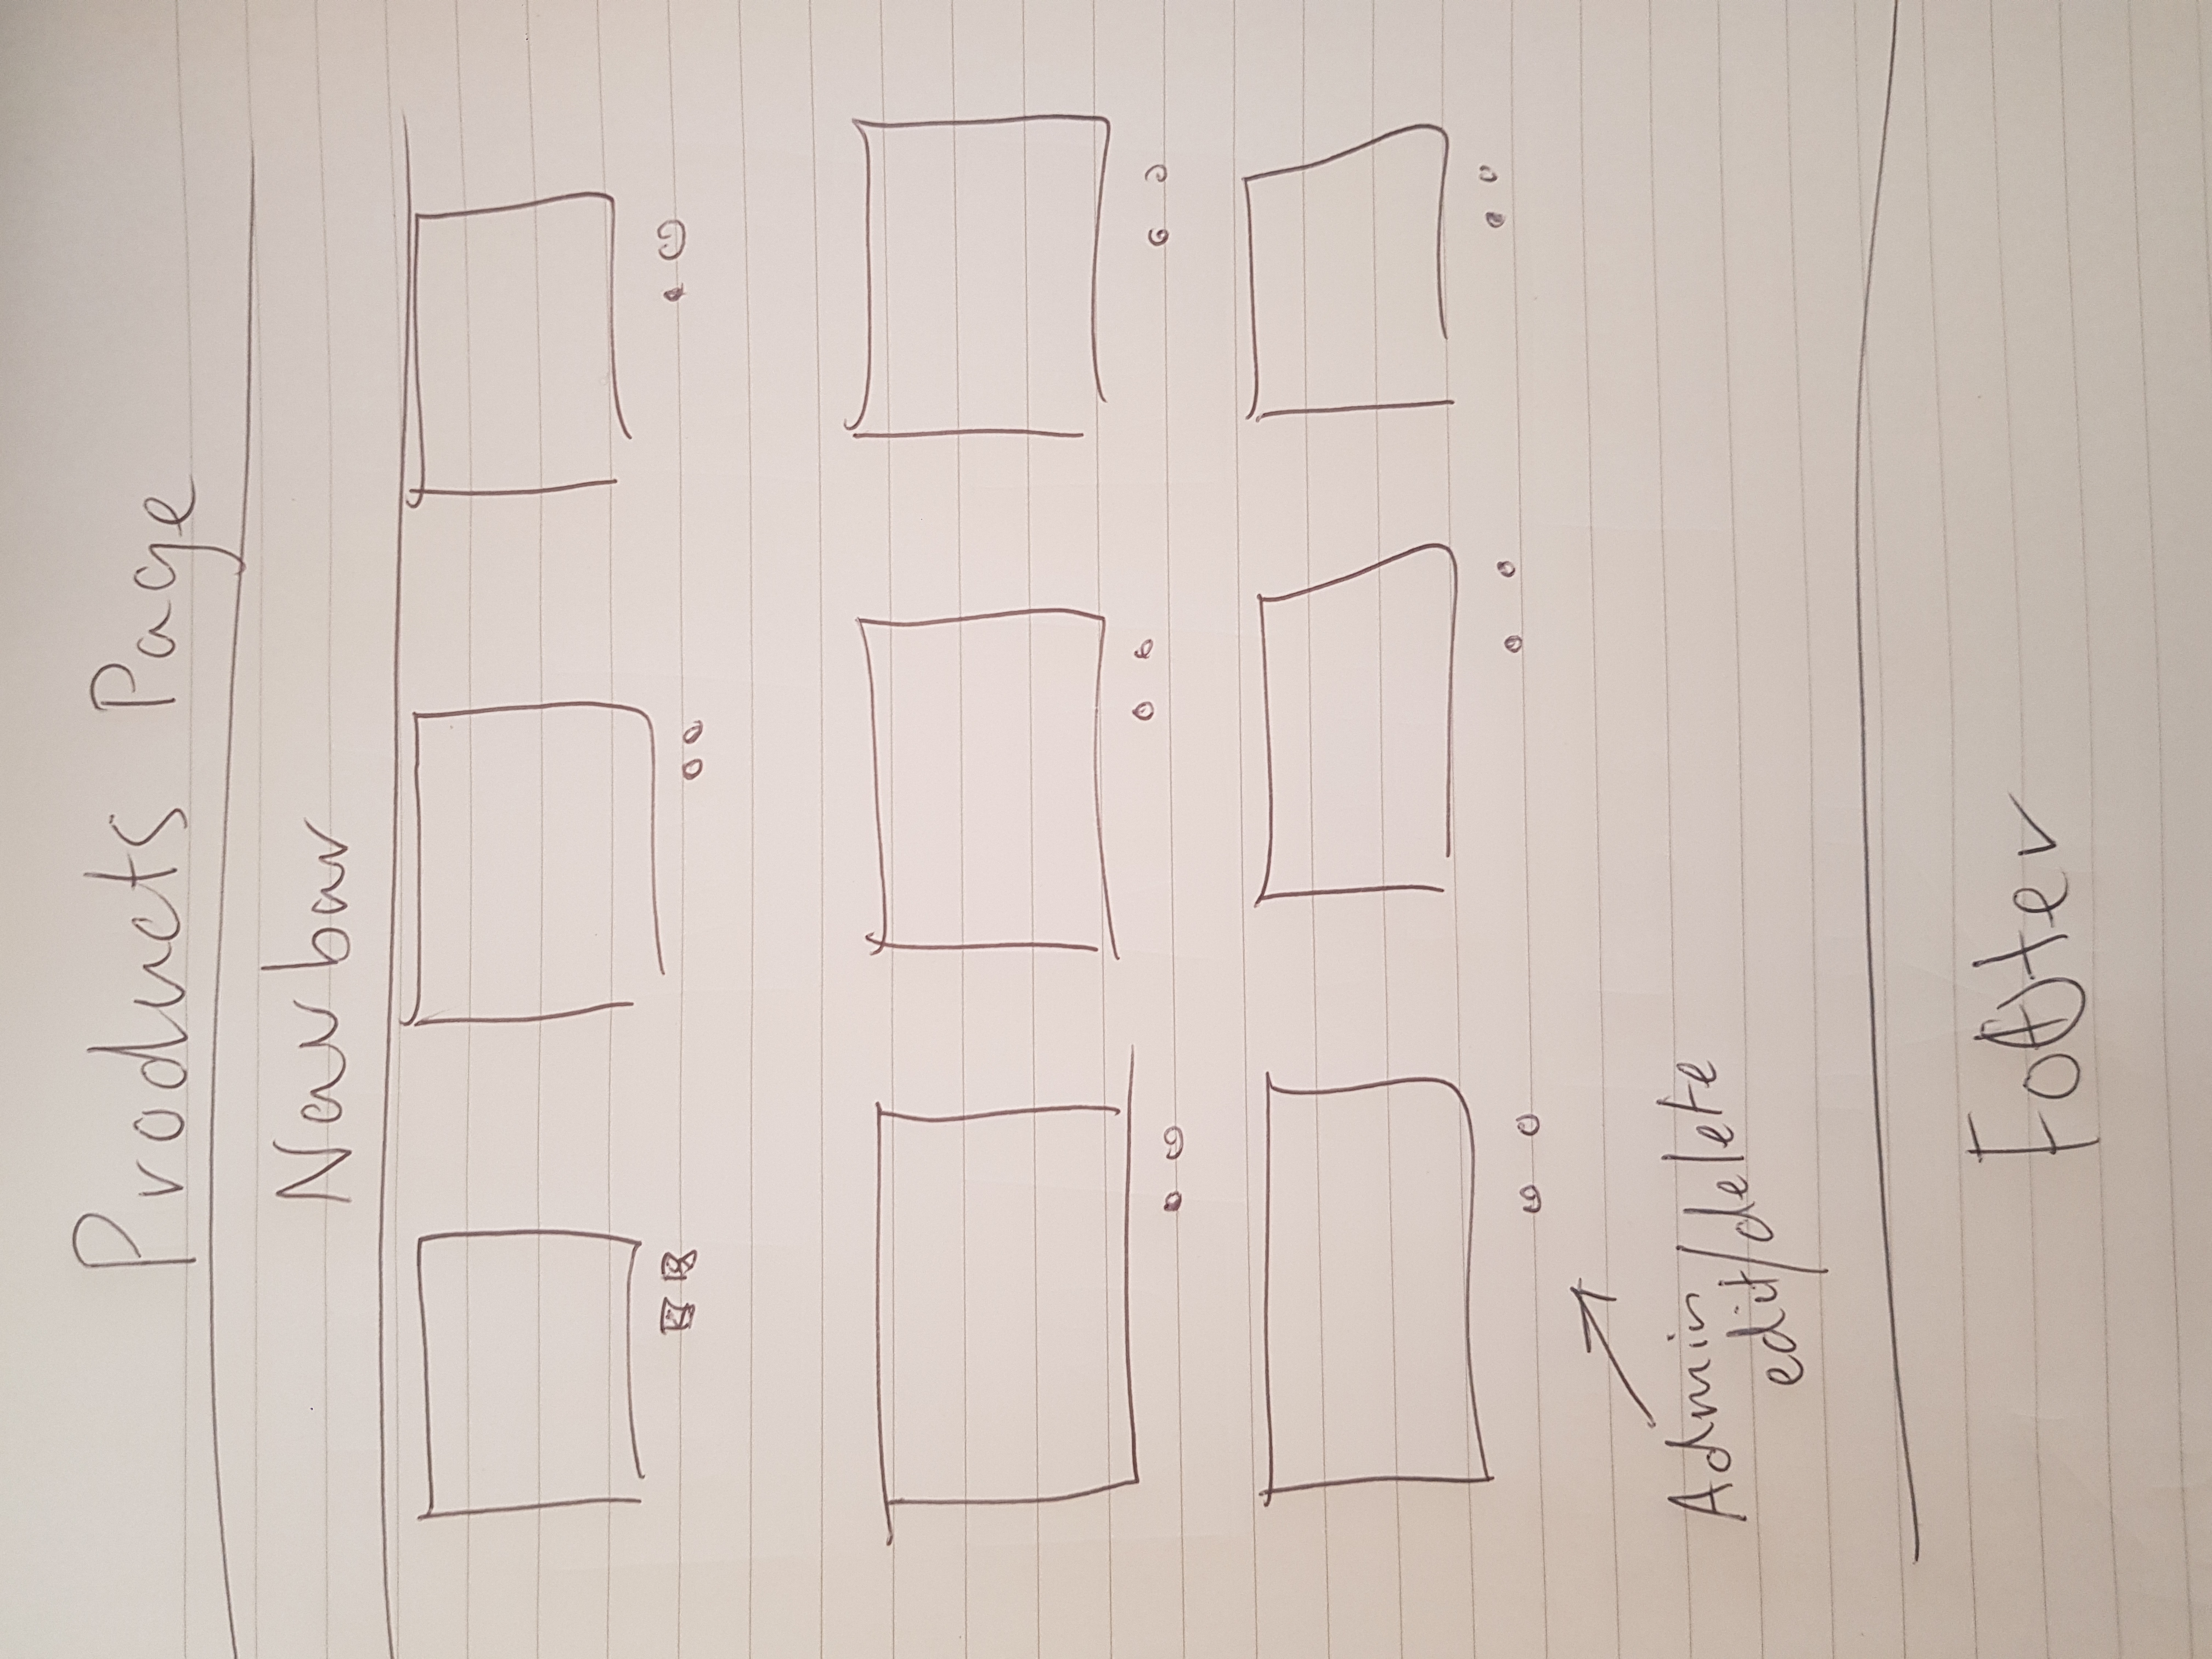 Products Page
Navbar
Admin
edit/delete
Footer